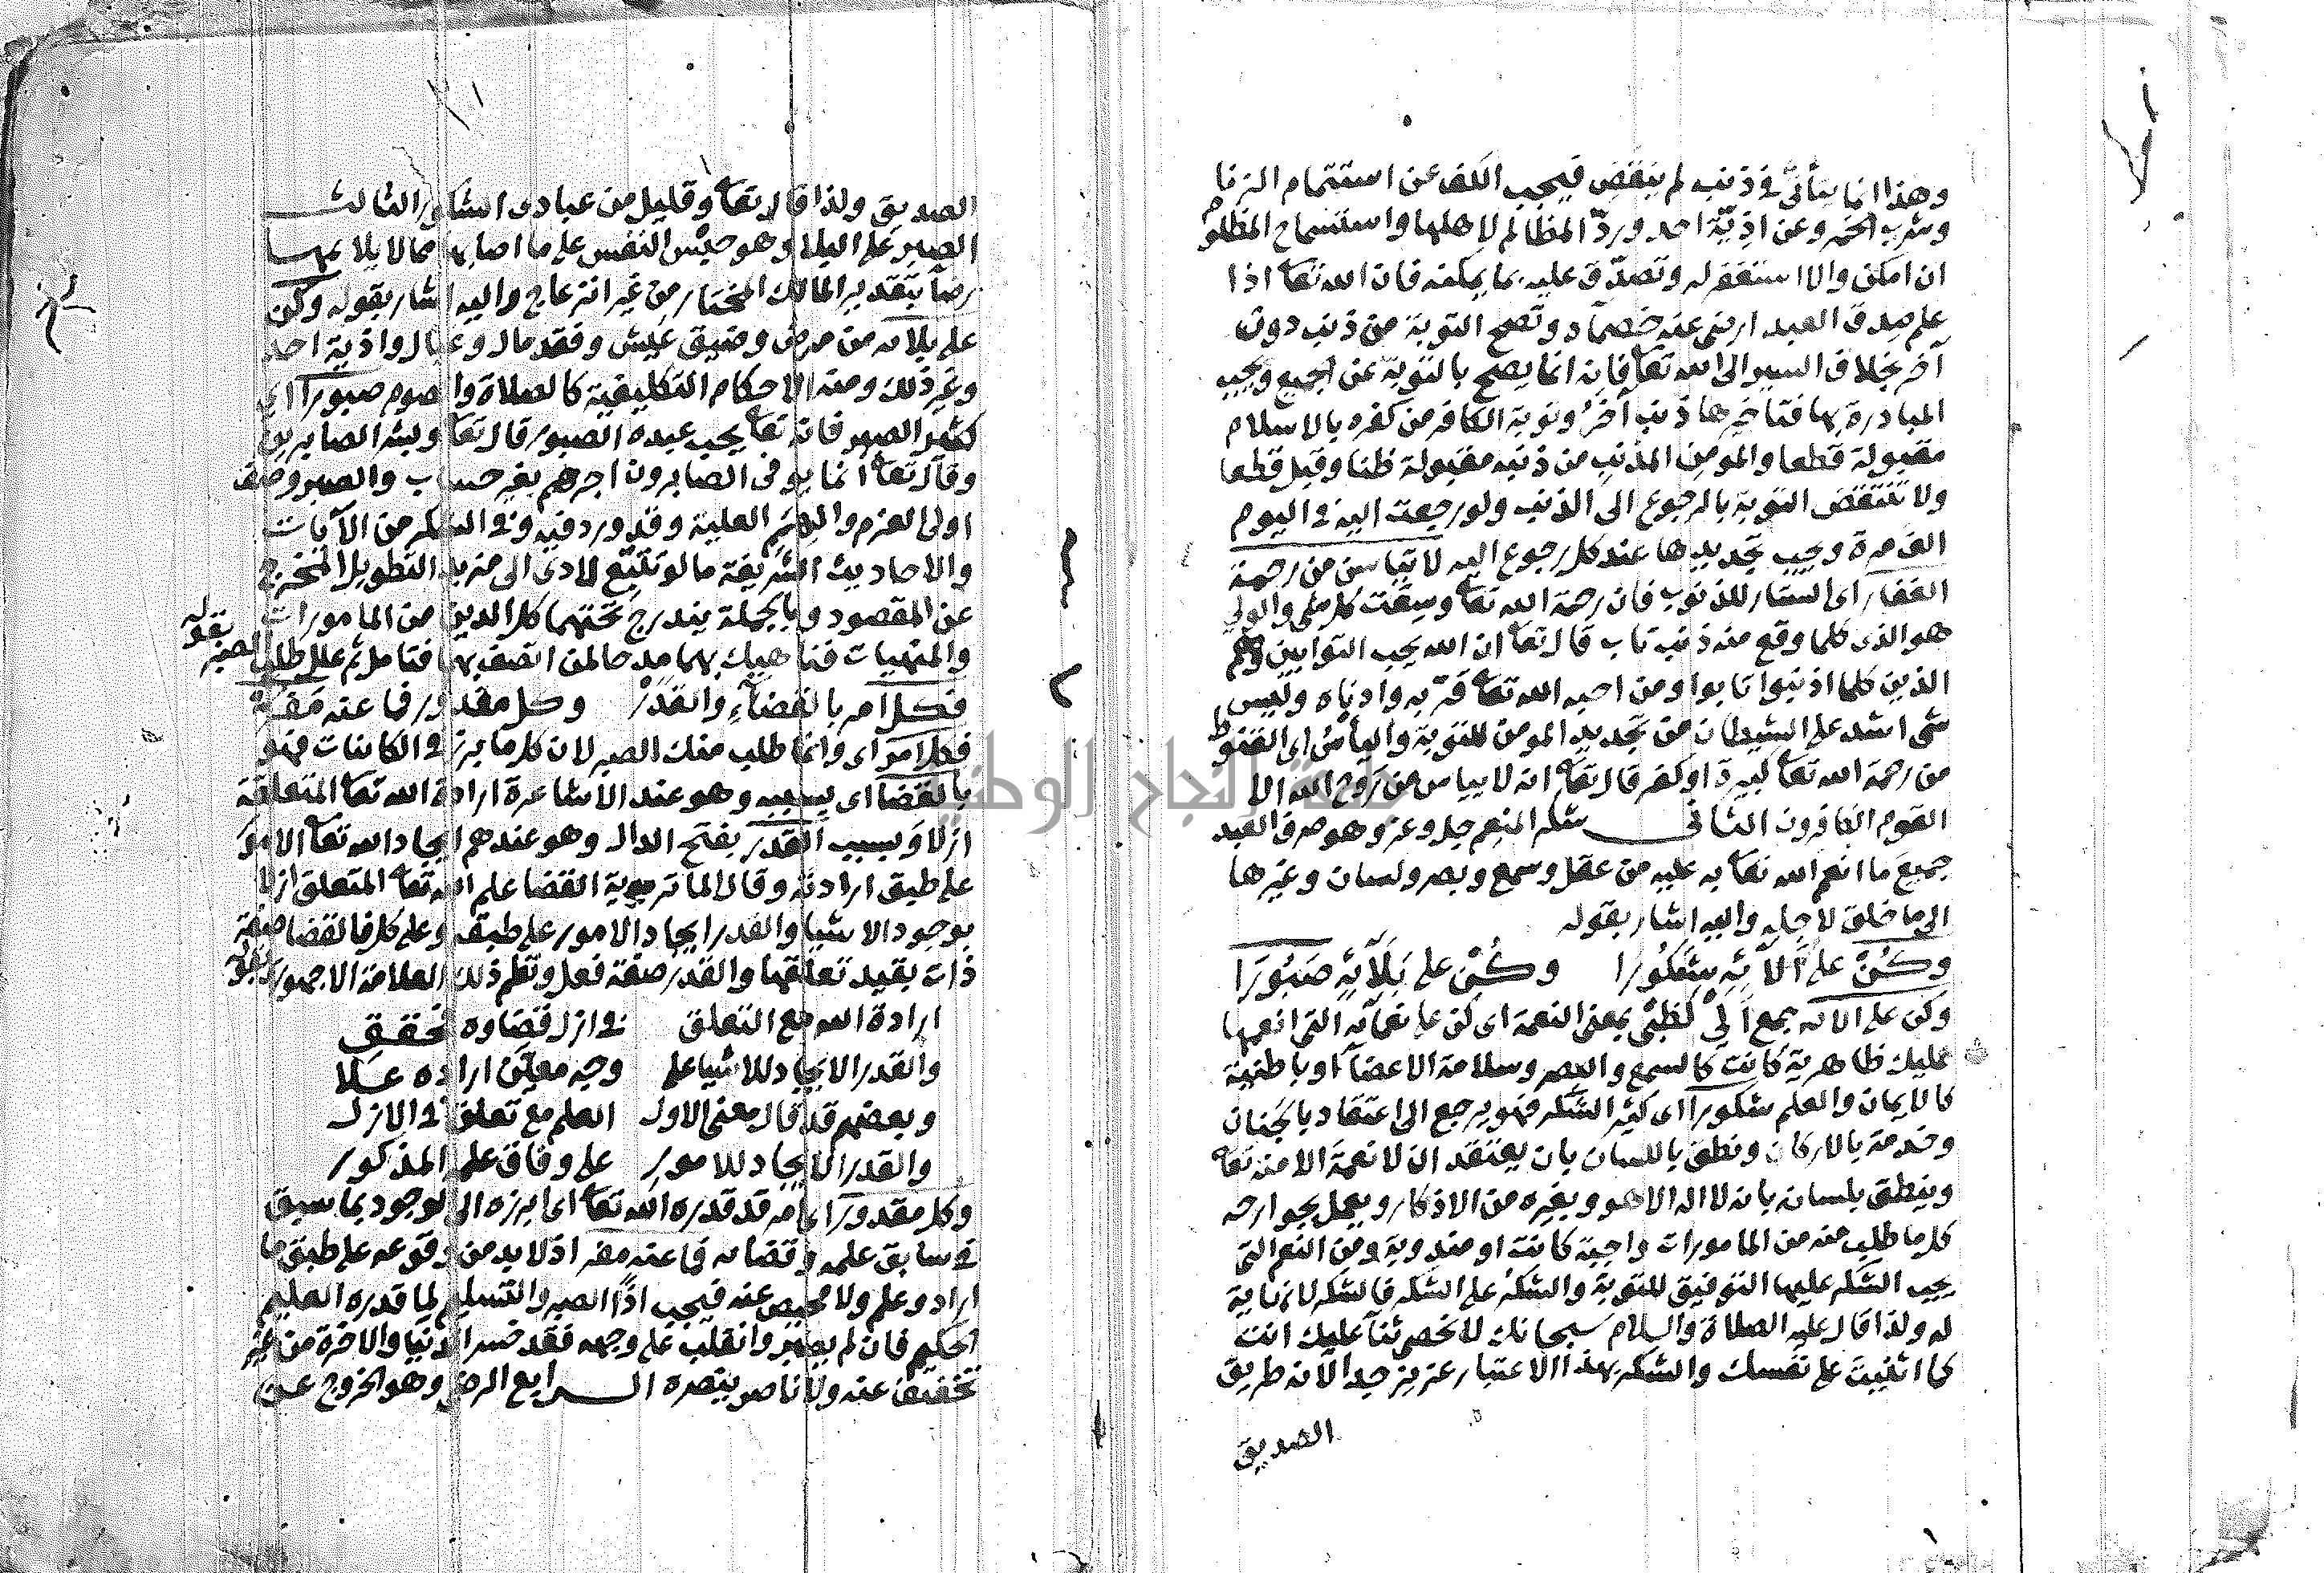 وهذا انما يتأتى في ذنب لم ينقض فيجب الكف عن استتمام الزنا
وشرب الخمر وعن اذية احد ورد المظالم لاهلها واستسماح المظلوم
ان امكن والا استغفر له وتصدق عليه بما يمكنه فان الله تعا اذا
علم صدق العبد ارضى عنه خصماه وتصح التوبة من ذنب دون
آخر بخلاف السير الى الله تعا فانه انما يصح بالتوبة عن الجميع ويجب
المبادرة بها فتاخيرها ذنب آخر وتوبة الكافر من كفره بالاسلام
مقبولة قطعا والمومن المذنب من ذنبه مقبولة ظنا وقيل قطعا
ولا تنتقض التوبة بالرجوع الى الذنب ولو رجعت اليه في اليوم
الف مرة ويجب تجديدها عند كل رجوع اليه لا تياسن من رحمة
الغفار اى الستار للذنوب فان رحمة الله تعا وسعت كل شى والولي
هو الذى كلما وقع منه ذنب تاب قال تعا ان الله يحب التوابين وهم
الذين كلما اذنبوا تابوا ومن احبه الله تعا قربه وادناه وليس
شى اشد على الشيطان من تجديد المومن للتوبة والياس اى القنوط
من رحمة الله تعا كبيرة او كفر قال تعا انه لا يياس من روح الله الا
القوم الكافرون الثاني شكر المنعم جل وعز وهو صرف العبد
جميع ما انعم الله تعا به عليه من عقل وسمع وبصر ولسان وغيرها
الى ما خلق لاجله واليه اشار بقوله
وكن على آلائه شكورا وكن على بلائه صبورا
وكن على الائه جمع الى كظبى بمعنى النعمة اى كن على نعمائه التى انعمها
عليك ظاهرية كانت كالسمع والبصر وسلامة الاعضآء او باطنية
كالايمان والعلم شكورا اى كثير الشكر فهو يرجع الى اعتقاد بالجنان
وخدمة بالاركان ونطق باللسان بان يعتقد ان لا نعمة الا منه تعا
وينطق بلسان بان لا اله الا هو وبغيره من الاذكار ويعمل بجوارحه
كل ما طلب منه من المامورات واجبة كانت او مندوبة ومن النعم التى
يجب الشكر عليها التوفيق للتوبة والشكر على الشكر فالشكر لا نهاية
له ولذا قال عليه الصلاة والسلام سبحانك لا نحصى ثنآء عليك انت
كما اثنيت على نفسك والشكر بهذا الاعتبار عزيز جدا لانه طريق
الصديق
الصديق ولذا قال تعا وقليل من عبادى الشكور الثالث
الصبر على البلاء وهو حبس النفس على ما اصابها مما لا يلايمها
رضآء بتقدير المالك المختار من غير انزعاج واليه اشار بقوله وكن
على بلائه من مرض وضيق عيش وفقد مال وعيال واذية احد
وغير ذلك ومنه الاحكام التكليفية كالصلاة والصوم صبورا اى
كثير الصبر فانه تعا يحب عبده الصبور قال تعا وبشر الصابرين
وقال تعا انما يوفى الصابرون اجرهم بغير حساب والصبر وصف
اولى العزم والهمم العلية وقد ورد فيه وفى الشكر من الآيات
والاحاديث الشريفة ما لو تتبع لادى الى مزيد التطويل المخرج
عن المقصود وبالجملة يندرج تحتهما كل الدين من المامورات
والمنهيات فناهيك بهما مدحا لمن اتصف بهما فتامل ثم علل طلب
الصبر بقوله
فكل امر بالقضآء والقدر وكل مقدور فما عنه مفر
فكل امر اى وانما طلب منك الصبر لان كل ما برز فى الكائنات فهو
بالقضا اى بسببه وهو عند الاشاعرة ارادة الله تعا المتعلقة
ازلا وبسبب القدر بفتح الدال وهو عندهم ايجاد الله تعا الامور
على طبق ارادته وقال الماتريدية القضا علم الله تعا المتعلق ازلا
بوجود الاشيا والقدر ايجاد الامور على طبقه وعلى كل فالقضا صفة
ذات بقيد تعلقها والقدر صفة فعل ونظم ذلك العلامة الاجهورى بقوله
ارادة الله مع التعلق فى ازل قضاوه فحقق
والقدر الايجاد للاشيا على وجه معين اراده علا
وبعضهم قد قال معنى الاول العلم مع تعلق فى الازل
والقدر الايجاد للامور على وفاق علمه المذكور
وكل مقدور اى امر قد قدره الله تعا اى ابرزه الى الوجود بما سبق
فى سابق علمه وقضائه فما عنه مفر اذ لا بد من وقوعه على طبق ما
اراد وعلم ولا محيص عنه فيجب اذًا الصبر والتسليم لما قدره العليم
الحكيم فان لم يصبر وانقلب على وجهه فقد خسر الدنيا والاخرة من غير
تخفيف عنه ولا ناصر ينصره الرابع الرضى وهو الخروج عن
جامعة النجاح الوطنية